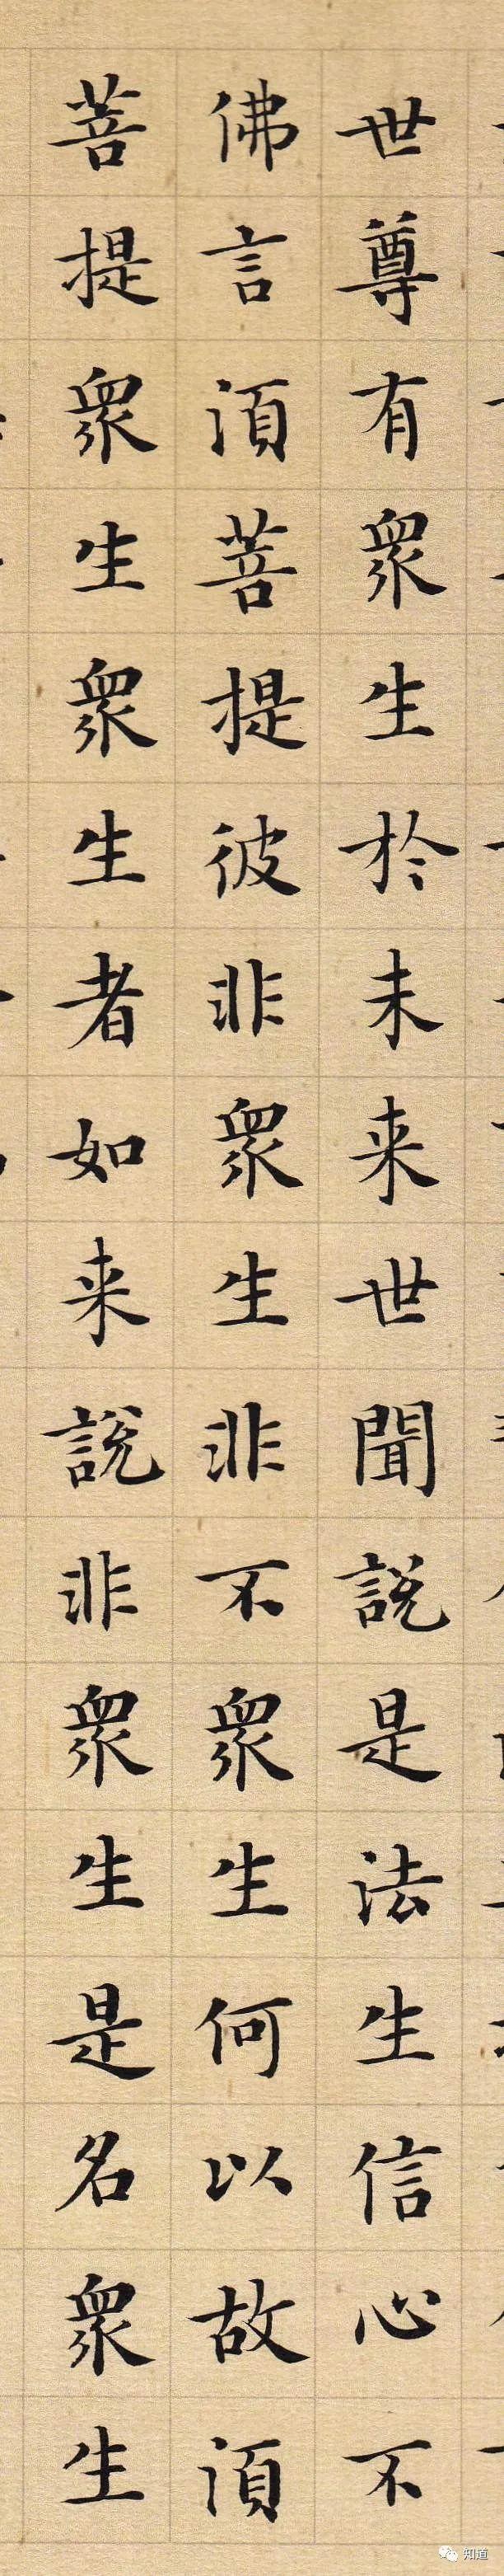 世尊有衆生於未来世聞說是法生信心不
佛言湏菩提彼非衆生非不衆生何以故湏
菩提衆生衆生者如来說非衆生是名衆生
知道